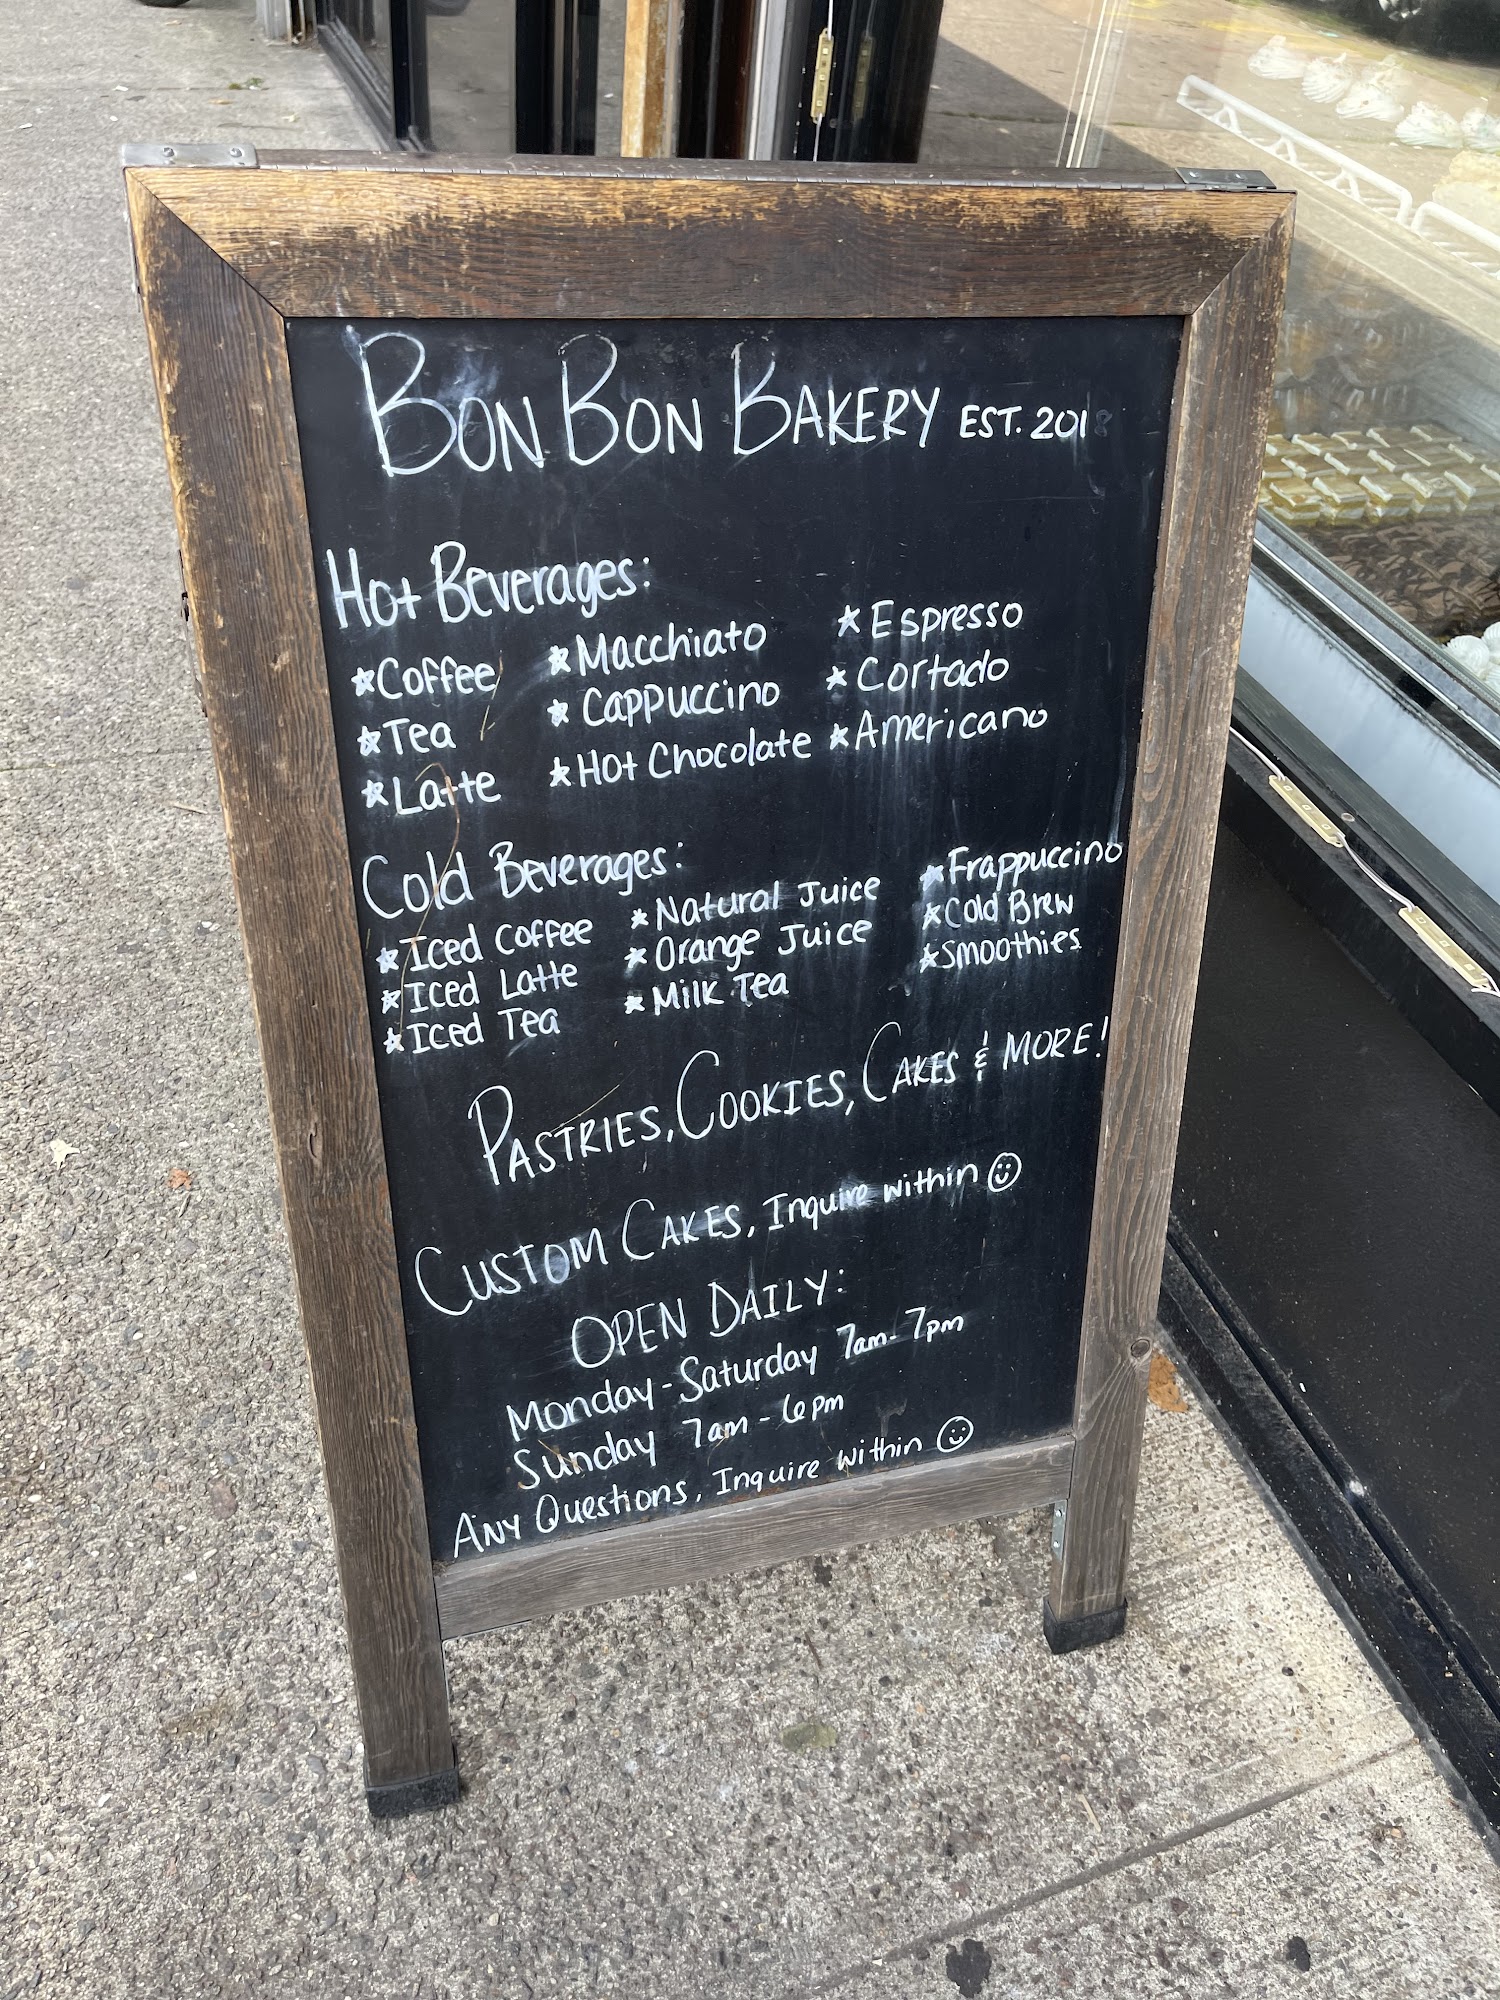 BON BON BAKERY EST. 2018
Hot Beverages:
*Coffee *Macchiato *Espresso
*Tea *Cappuccino *Cortado
*Latte *Hot Chocolate *Americano
Cold Beverages:
*Iced Coffee *Natural Juice *Frappuccino
*Iced Latte *Orange Juice *Cold Brew
*Iced Tea *Milk Tea *Smoothies
PASTRIES, COOKIES, CAKES & MORE!
CUSTOM CAKES, Inquire within ☺
OPEN DAILY:
Monday-Saturday 7am-7pm
Sunday 7am-6pm
ANY Questions, Inquire within ☺